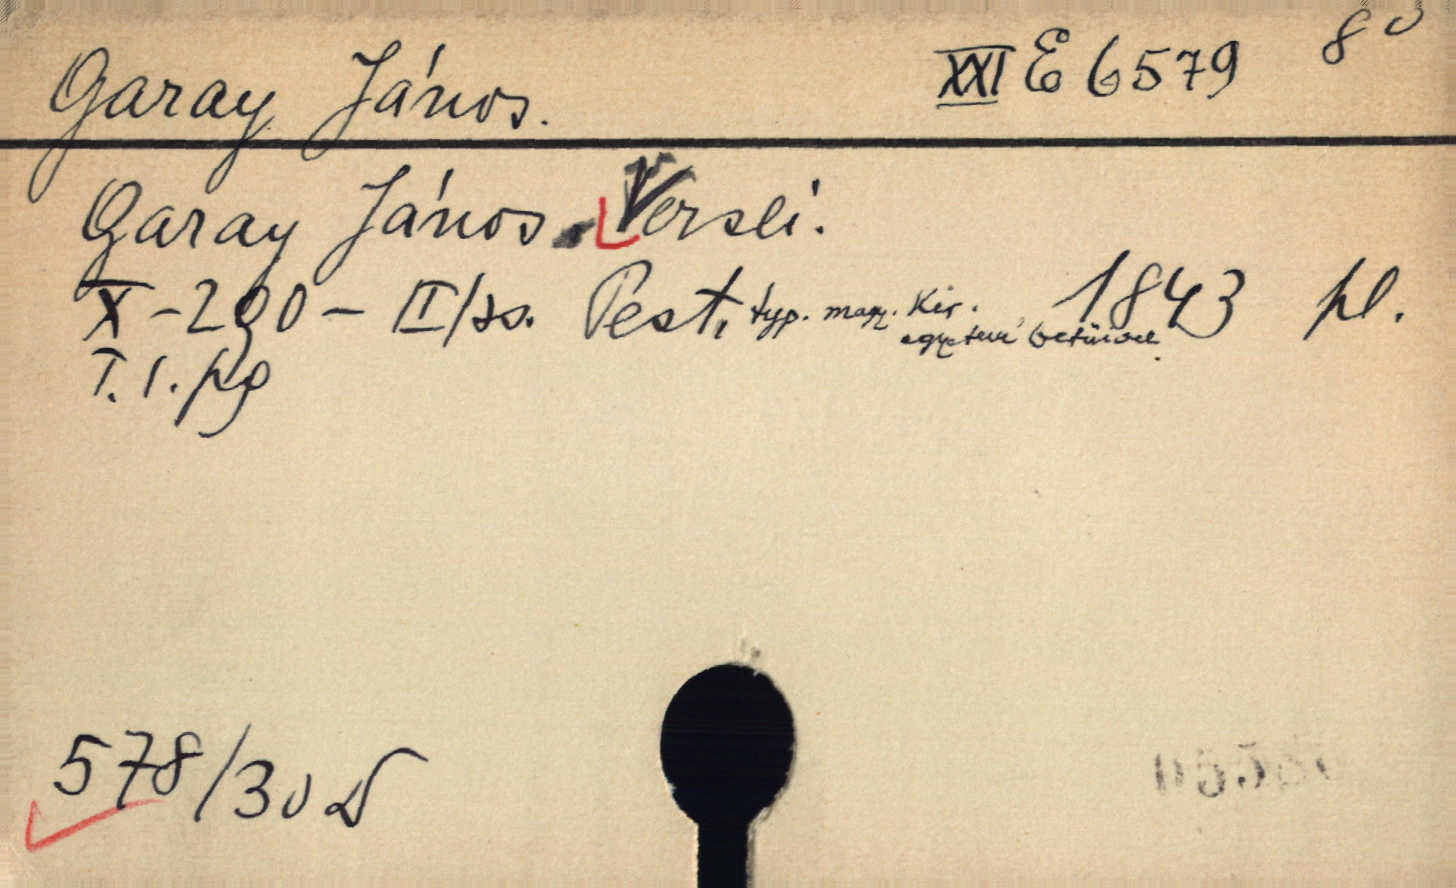 Garay János.
XXI E 6579 8º
Garay János Versei.
X-290- II/ss. Pest, typ. magy. Kir. egyetemi betűivel. 1843 pl.
T. 1. pg
578/30